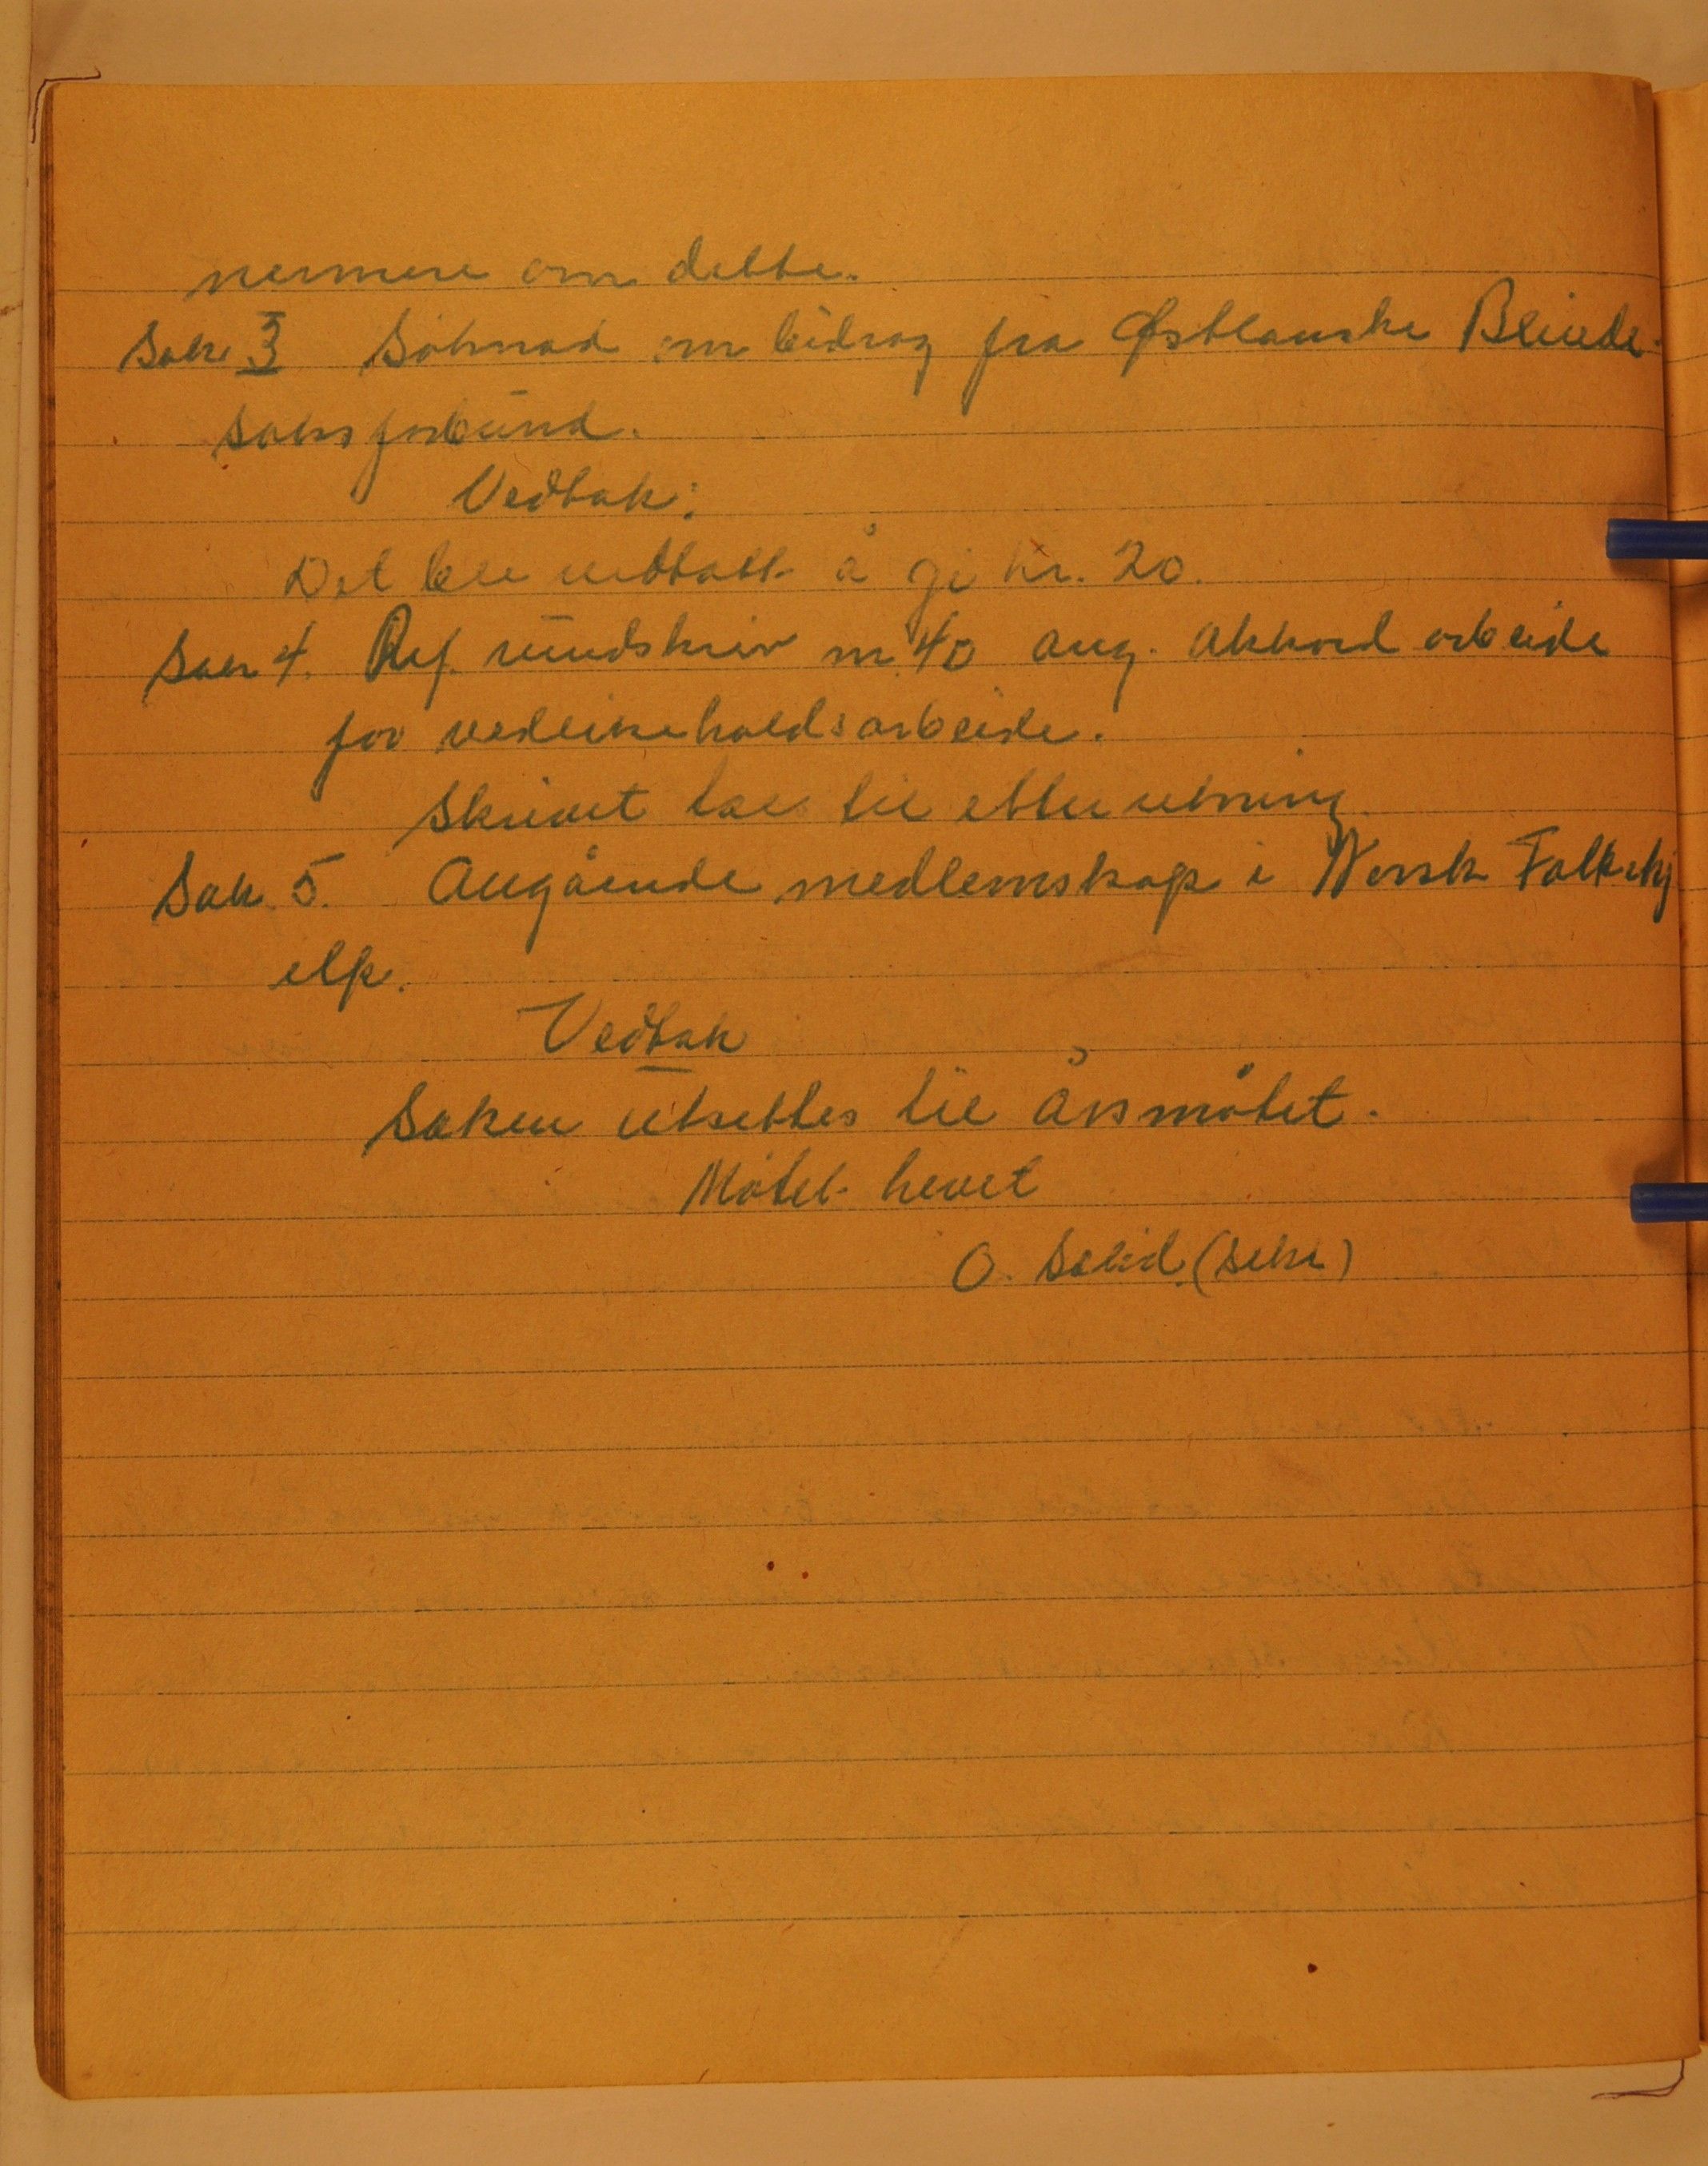 nermere om dette.
Sak 3 Söknad om bidrag fra Østlanske Blinde-
saksforbund.
Vedtak:
Det ble vedtatt å gi kr. 20.
Sak 4. Ref. rundskriv nr 40 ang. akkord arbeide
for vedlikeholdsarbeide.
Skrivet tas til etterretning
Sak 5. Angående medlemskap i Norsk Folkehj
elp.
Vedtak
Saken utsettes til årsmötet.
Mötet hevet
O. Solid (sekr)